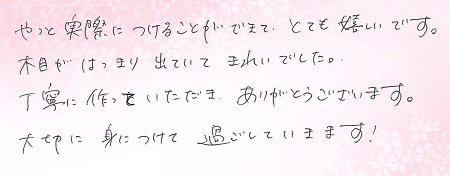 やっと実際につけることができて、とても嬉しいです。
木目がはっきり出ていてきれいでした。
丁寧に作っていただき、ありがとうございます。
大切に身につけて過ごしていきます!